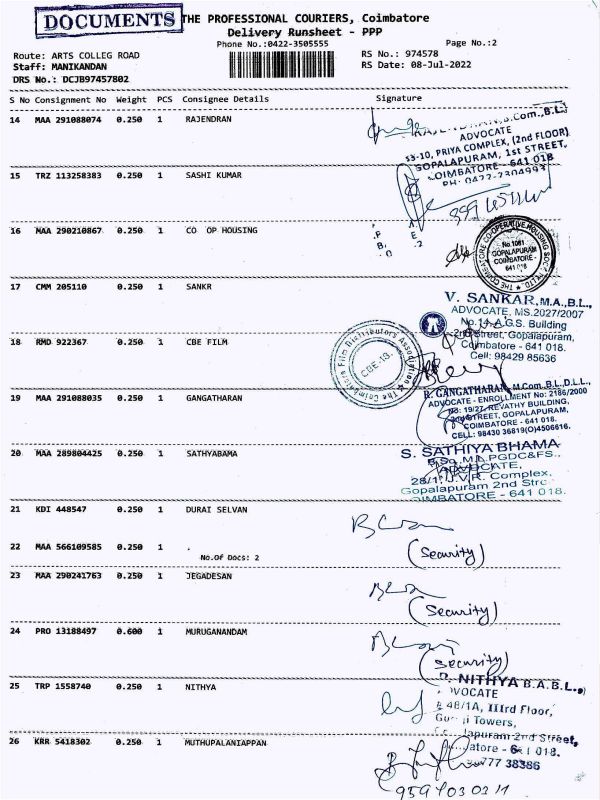 DOCUMENTS
THE PROFESSIONAL COURIERS, Coimbatore
Delivery Runsheet - PPP
Phone No.:0422-3505555
Page No.:2
Route: ARTS COLLEG ROAD
RS No.: 974578
Staff: MANIKANDAN
RS Date: 08-Jul-2022
DRS No.: DCJB97457802
S No Consignment No Weight PCS Consignee Details Signature
14 MAA 291088074 0.250 1 RAJENDRAN
B.Com.,B.L.
ADVOCATE
S3-10, PRIYA COMPLEX, (2nd FLOOR)
GOPALAPURAM, 1st STREET,
COIMBATORE - 641 018
PH: 0422-2304993
15 TRZ 113258383 0.250 1 SASHI KUMAR
16 MAA 290210867 0.250 1 CO OP HOUSING
THE COIMBATORE CO-OPERATIVE HOUSING SOCIETY LTD.
No.1081
GOPALAPURAM
COIMBATORE -
641 018
17 CMM 205110 0.250 1 SANKR
V. SANKAR, M.A.,B.L.,
ADVOCATE, MS.2027/2007
No.14-A.G.S. Building
2nd Street, Gopalapuram,
Coimbatore - 641 018.
Cell: 98429 85636
18 RMD 922367 0.250 1 CBE FILM
The Coimbatore Film Distributors Association
CBE-18.
19 MAA 291088035 0.250 1 GANGATHARAN
R. GANGATHARAN, M.Com.,B.L.,D.L.L.,
ADVOCATE - ENROLLMENT No: 2186/2000
No: 19/27, REVATHY BUILDING,
2nd STREET, GOPALAPURAM,
COIMBATORE - 641 018.
CELL: 98430 36819(O)4506616.
20 MAA 289804425 0.250 1 SATHYABAMA
S. SATHIYA BHAMA
B.Sc., M.L.PGDC&FS.,
ADVOCATE,
28/1, J.V.R. Complex,
Gopalapuram 2nd Stre
OIMBATORE - 641 018.
21 KDI 448547 0.250 1 DURAI SELVAN
22 MAA 566109585 0.250 1 .
No.Of Docs: 2
(Security)
23 MAA 290241763 0.250 1 JEGADESAN
(Security)
24 PRO 13188497 0.600 1 MURUGANANDAM
(Security)
25 TRP 1558740 0.250 1 NITHYA
NITHYA B.A.B.L.,
VOCATE
48/1A, IIIrd Floor,
Towers,
lapuram 2nd Street,
atore - 641 018.
777 38386
26 KRR 5418302 0.250 1 MUTHUPALANIAPPAN